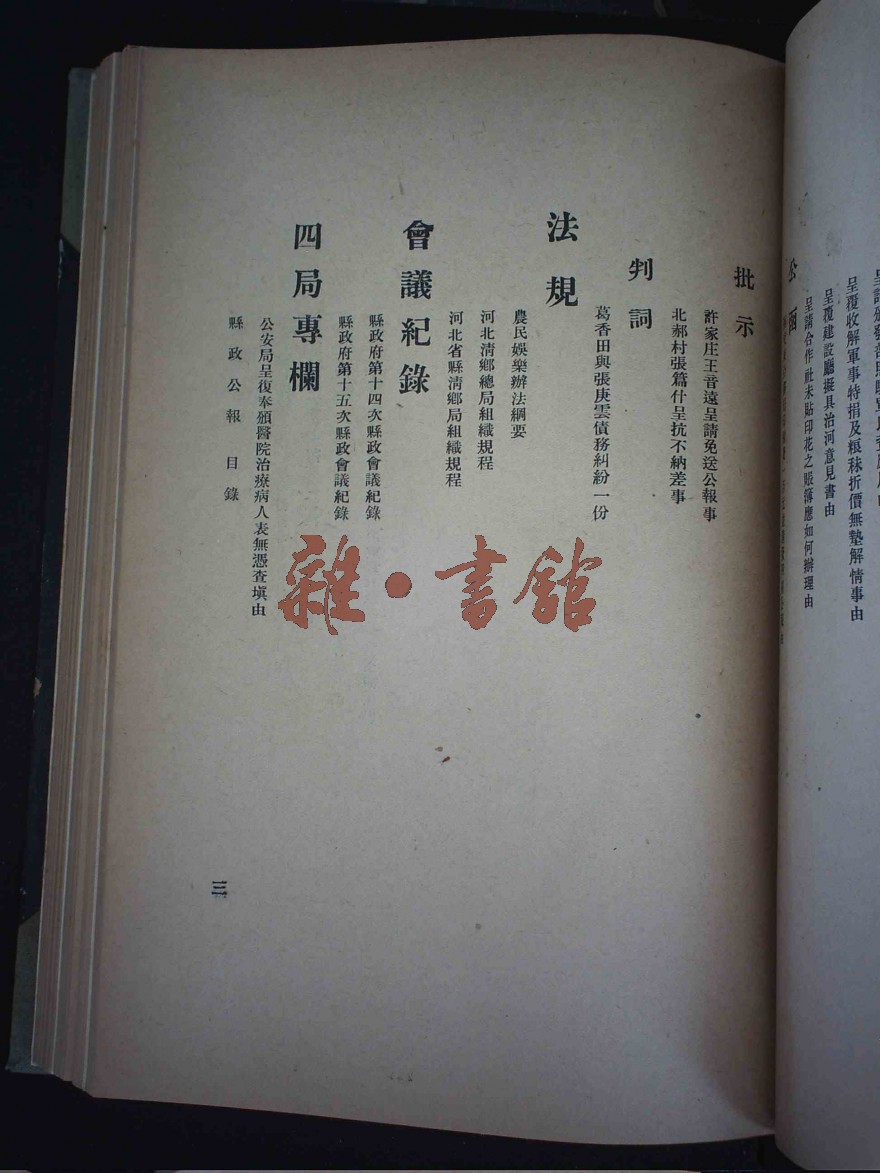 呈覆收解軍事特捐及粮秣折價無墊解情事由
呈覆建設廳擬具治河意見書由
呈請合作社未貼印花之賬簿應如何辦理由
公函
批示
許家庄王音遠呈請免送公報事
北郝村張篇什呈抗不納差事
判詞
葛香田與張庚雲債務糾紛一份
法規
農民娛樂辦法綱要
河北清鄉總局組織規程
河北省縣清鄉局組織規程
會議紀錄
縣政府第十四次縣政會議紀錄
縣政府第十五次縣政會議紀錄
四局專欄
公安局呈復奉頒醫院治療病人表無憑查塡由
縣政公報 目錄
三
雜·書館